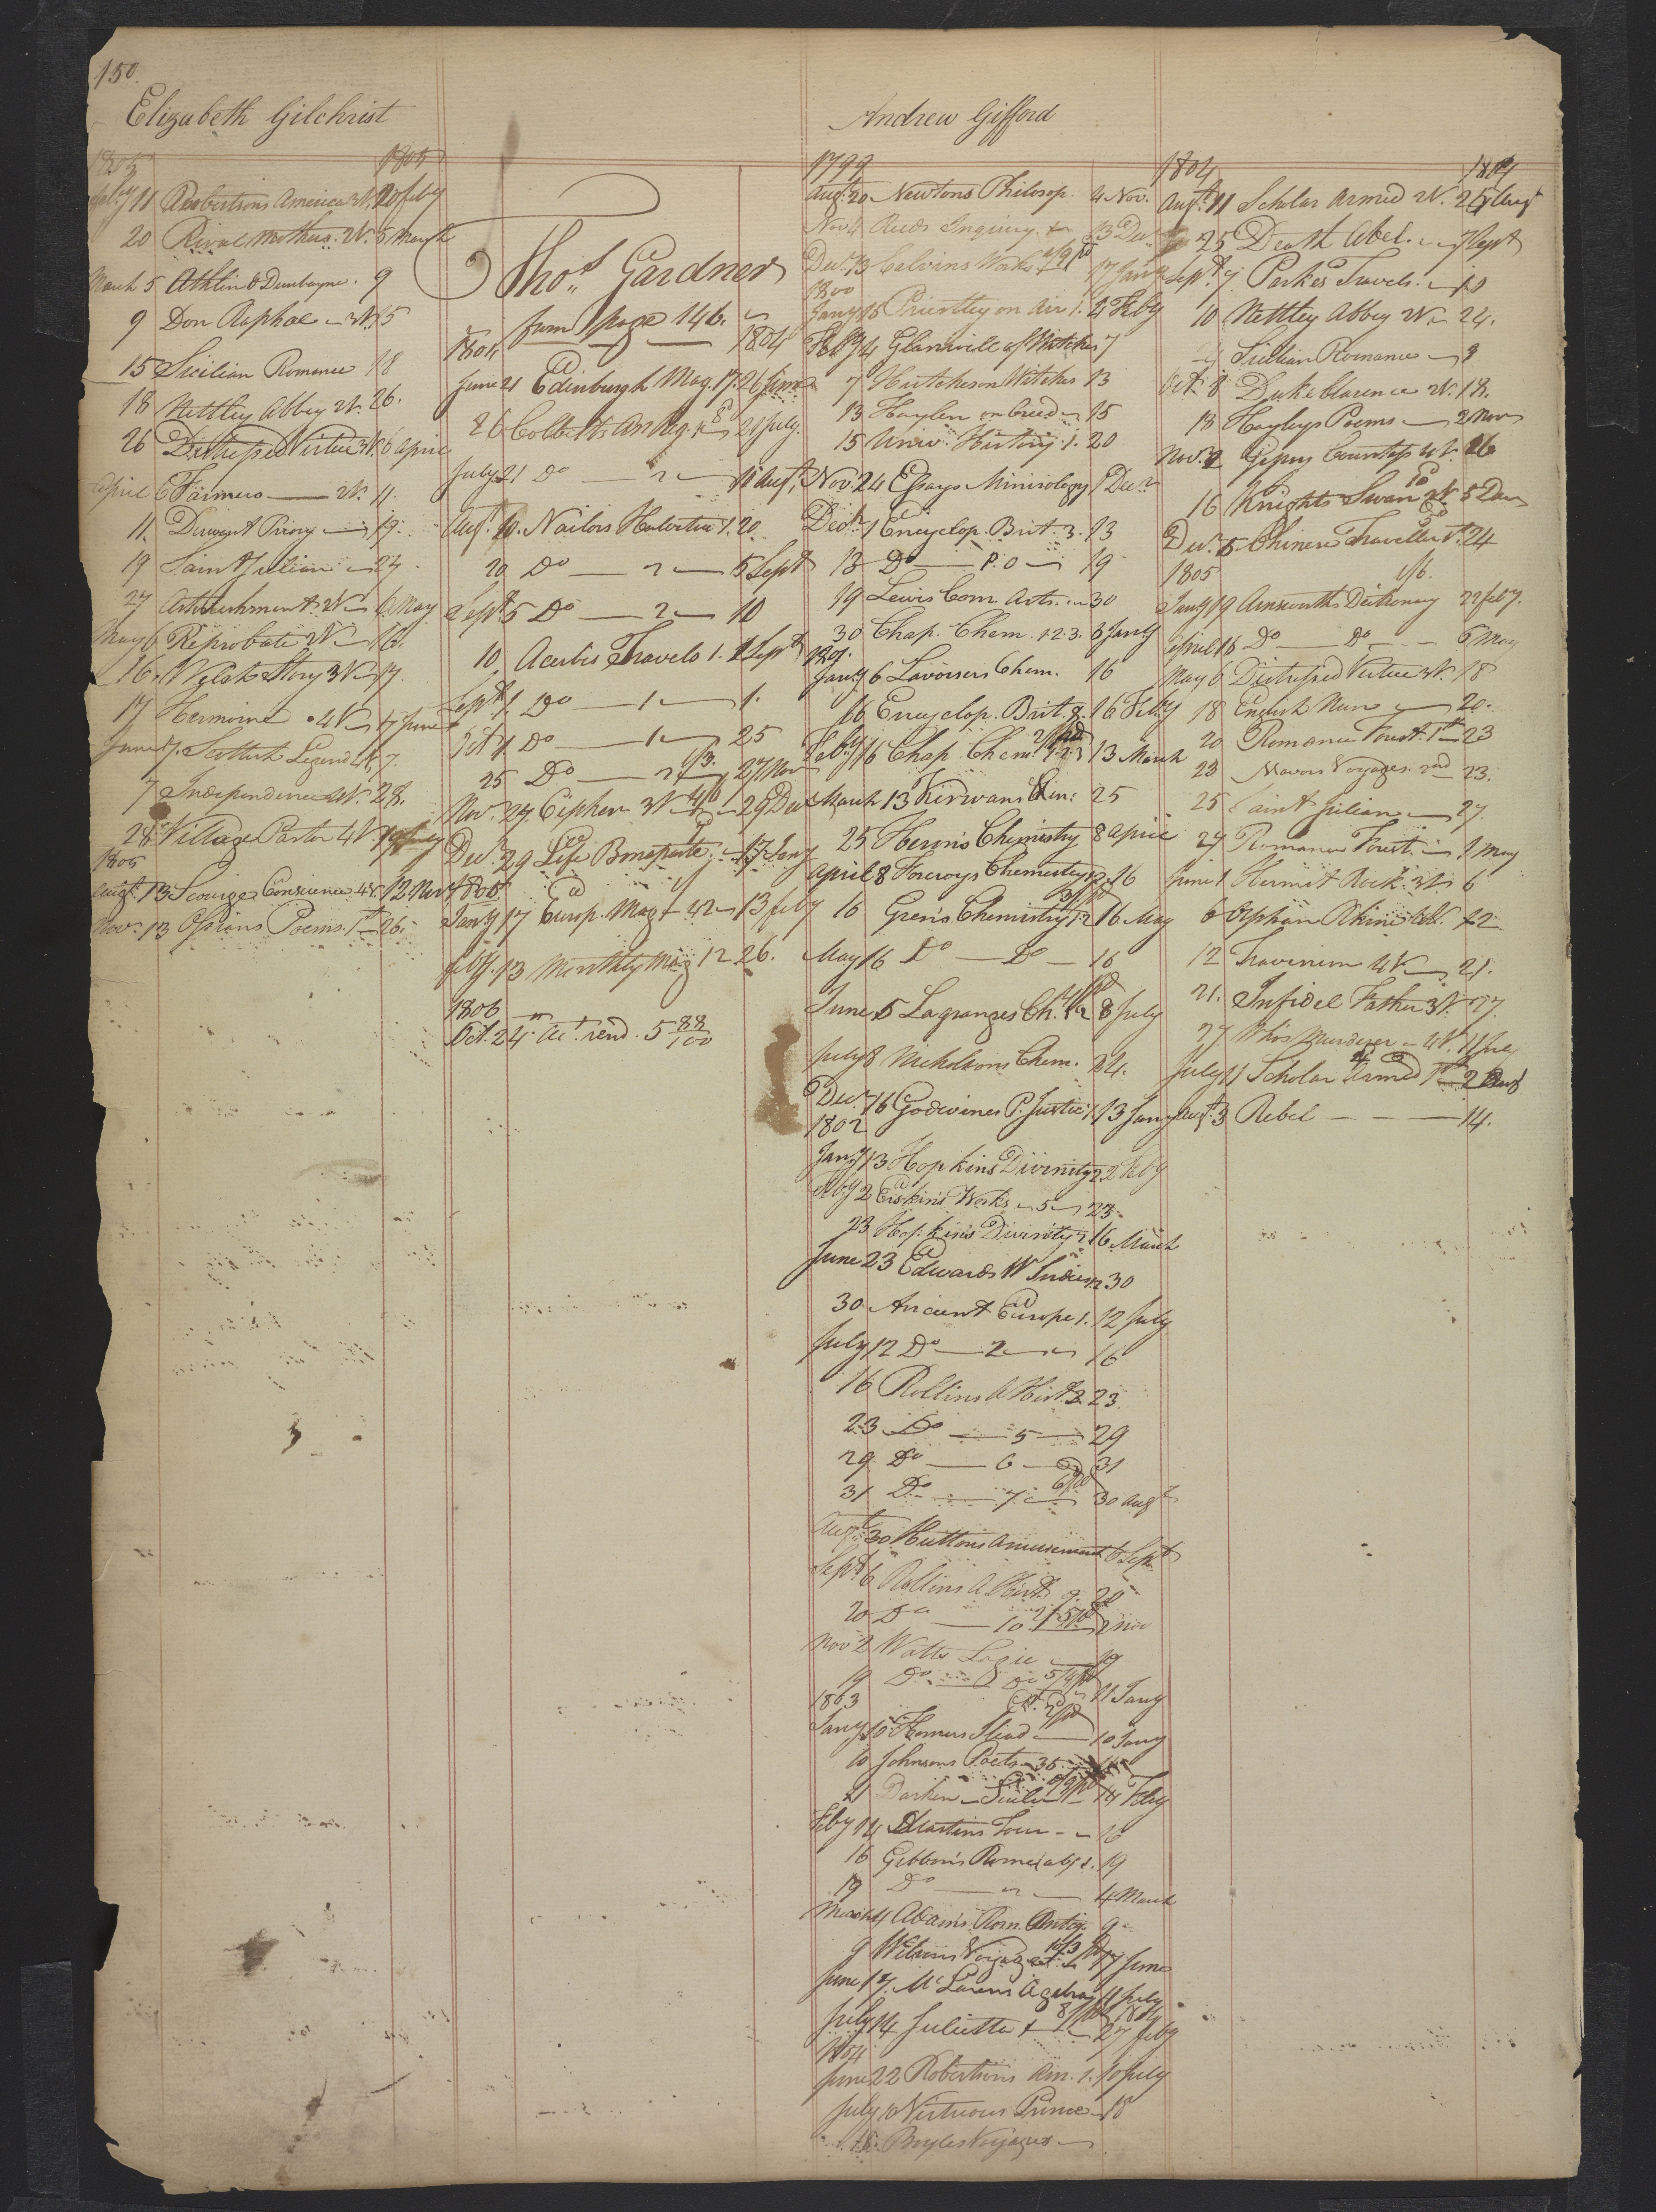 150.
Elizabeth Gilchrist
1805 1805
Feby 11 Robertsons America 3V. 20 feby
20 Rival Mothers. 2V. 5 March
March 5 Athlin & Dunbayne. 9
9 Don Raphael 3V. 15
15 Sicilian Romance 18
18 Nettley Abbey 2V. 26.
26 Distressed Virtue 3V. 6 April
April 6 Farmers — 2V. 11.
11. Derwent Priory — 19.
19 Saint Julian — 27
27 Astonishment. 2V — 6 May
May 6 Reprobate 2V — 16.
16. Welsh Story 3V — 17.
17 Hermoine 4V — 7 June
June 7. Scottish Legend 4V. 7.
7 Independence 4V. 28.
28 Village Pastor 4V. 19 July
1805
Augt. 13 Scourge Conscience 4V. 12 Nov
Nov. 13 Ossians Poems. 1st 26.
Thos. Gardner
from page 146.
1804 1804
June 21 Edinburgh Mag. 17. 26 June
26 Colbert An Reg. 21 July.
July 21 Do — 2 — 11 Augt.
Augt. 10. Nailors Helvetia 1. 20.
20 Do — 2 — 5 Sept
Sept. 5 Do — 2 — 10
10 Acerbis Travels 1. 1 Sept
Sept 1 Do — 1 — 1.
Oct 1 Do — 1 — 25
25 Do — 2 1/3. 27 Nov
Nov. 27. Cipher 3V 4/6 29 Dec
Decr. 29 Life Bonaparte, — 17 Jany
1805
Jany 17 Europ. Mag — 42 — 13 feby
feby. 13 Monthly Mag 12 26.
1806
Oct. 24 Act. rend. 5 88/100
Andrew Gifford
1799
Augt. 20 Newtons Philosop. 4 Nov.
Nov. 4 Reeds Inquiry. 13 Decr
Decr. 13 Calvins Works 17 Jany
1800
Jany 16 Priestley on Air 1. 4 Feby
Feby 4 Glanvill of Witches 7
7 Hutcheson Witches 13
13 Haylen on Creed — 15
15 Univ. History 1. 20
Nov. 24 Essays Minirology 1 Decr
Decr. 1 Encyclop. Brit. 3. 13
13 Do — P. O — 19
19 Lewis Com. Arts. — 30
30 Chap. Chem. 1.2.3. 6 Jany
1801.
Jany 6 Lavoisers Chem. 16
16 Encyclop. Brit. 16 Feby
Feby 16 Chap. Chem. 1.2.3 13 March
March 13 Kirwans Min: 25
25 Herons Chemistry 8 April
April 8 Forcroys Chemestry 12. 16
16 Grens Chemistry 1.2 16 May
May 16 Do — Do — 16
June 5 Lagranges Ch. 1.2 8 July
July 8 Nicholsons Chem. 24.
Decr. 16 Godwines P. Justic 1. 13 Jany
1802
Jany 13 Hopkins Divinity 2 2 Feby
Feby 2 Erskins Works — 5 — 23
23 Hopkins Divinity 2 16 March
June 23 Edwards W Indies 12 30
30 Ancient Europe 1. 12 July
July 12 Do — 2 — 16
16 Rollins A Hist. 3. 23
23 Do — 5 — 29
29 Do — 6 — 31
31 Do — 7 — 6/pd 30 Augt
Augt. 30 Huttons Amusement 6 Sept
Sept. 6 Rollins A Hist. 9. 20
20 Do — 10 2 nov
Nov 2 Watts Logic — 19
19 Do — Do 5/4pd 11 Jany
1803
Jany 10 Homers Iliad — 10 Jany
10 Johnsons Poets — 35
14 Feby
Feby 14 Martins Tour — 16
16 Gibbons Rome abg 1. 19
19 Do — 2 — 4 March
March 4 Adams Rom. Antiq. 9
9 Wilsons Voyage 17 June
June 17. McLarens Agebra 14 July
July 14 Julietta 8/pd 27 feby
1804
June 22 Robertsons Am. 1. 10 July
July 10 Virtuous Prince — 18
18 Boyles Voyages —
1804 1804
Augt. 11 Scholar Armed 2V. 25 Augt
25 Death Abel. — 7 Sept
Sept. 7 Parkes Travels. — 10
10 Nettley Abbey 2V — 24.
24 Sicilian Romance — 8
Oct. 8 Duke Clarence 4V. 18.
18 Hayleys Poems — 2 Nov
Nov. 2 Gipsey Countess 4V. 16
16 Knights Swan 2V 5 Dec
Decr. 5 Chinese Traveller 1. 24
1805
Jany 19 Ainsworths Dictionary 22 feby.
April 16 Do — Do — 6 May
May 6 Distressed Virtue 3V. 18
18 English Nun — 20.
20 Romance Forest. 1st 23
23 Mavors Voyages. 2nd 23.
25 Saint Julian — 27.
27 Romance Forest. — 1 May
June 1 Hermit Rock. 3V 6
6 Orphan Rhine 12
12 Travinion 4V — 21.
21. Infidel Father 3V. 27.
27 Whos Murderer — 4V. 11 July
July 11 Scholar Armed 1st 2 Augt
Augt. 3 Rebel — — — 14.